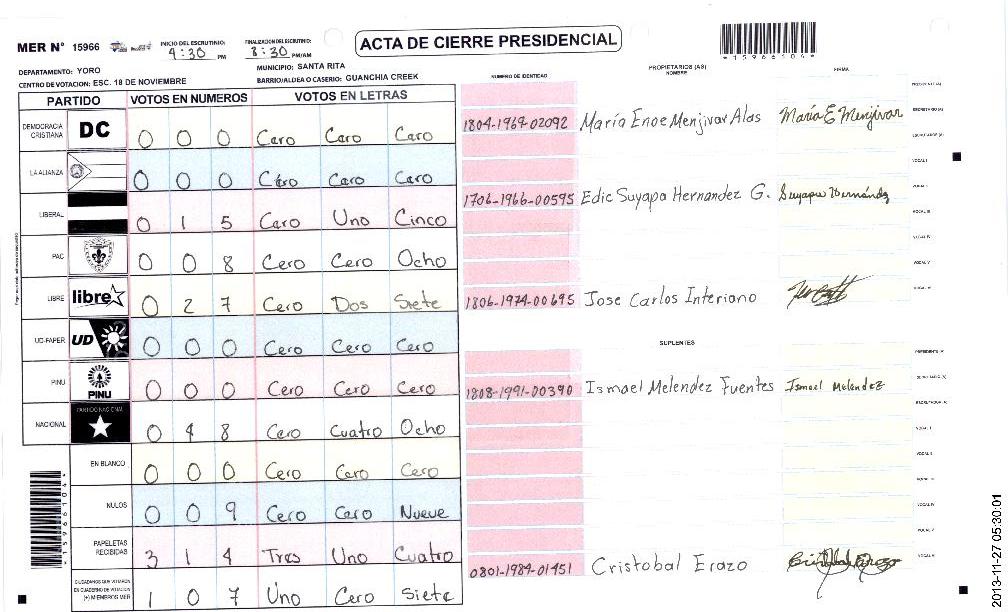 MER N° 15966
INICIO DEL ESCRUTINIO: 4:30 PM
FINALIZACION DEL ESCRUTINIO: 8:30 PM/AM
ACTA DE CIERRE PRESIDENCIAL
*15966104*
DEPARTAMENTO: YORO
MUNICIPIO: SANTA RITA
CENTRO DE VOTACION: ESC. 18 DE NOVIEMBRE
BARRIO/ALDEA O CASERIO: GUANCHIA CREEK
PARTIDO VOTOS EN NUMEROS VOTOS EN LETRAS
DEMOCRACIA CRISTIANA DC 0 0 0 Caro Caro Caro
LA ALIANZA 0 0 0 Caro Caro Caro
LIBERAL 0 1 5 Caro Uno Cinco
PAC 0 0 8 Cero Cero Ocho
LIBRE libre 0 2 7 Cero Dos Siete
UD-FAPER UD 0 0 0 Cero Cero Cero
PINU PINU 0 0 0 Cero Cero Cero
NACIONAL PARTIDO NACIONAL 0 4 8 Cero Cuatro Ocho
EN BLANCO 0 0 0 Cero Cero Cero
NULOS 0 0 9 Cero Cero Nueve
PAPELETAS RECIBIDAS 3 1 4 Tres Uno Cuatro
CIUDADANOS QUE VOTARON EN CUADERNO DE VOTACION (+) MIEMBROS MER 1 0 7 Uno Cero Siete
NUMERO DE IDENTIDAD
PROPIETARIOS (AS)
NOMBRE
FIRMA
PRESIDENTE (A)
SECRETARIO (A)
1804-1969-02092 María Enoe Menjivar Alas María E Menjivar
ESCRUTADOR (A)
VOCAL I
1706-1966-00595 Edic Suyapa Hernandez G. Suyapa Hernández
VOCAL III
VOCAL IV
VOCAL V
1806-1974-00695 Jose Carlos Interiano
SUPLENTES
PRESIDENTE (A)
1808-1991-00390 Ismael Melendez Fuentes Ismael Melendez
SECRETARIO (A)
ESCRUTADOR (A)
VOCAL I
VOCAL II
VOCAL III
VOCAL IV
VOCAL V
0801-1984-01451 Cristobal Erazo
*15966104*
2013-11-27 05:30:01